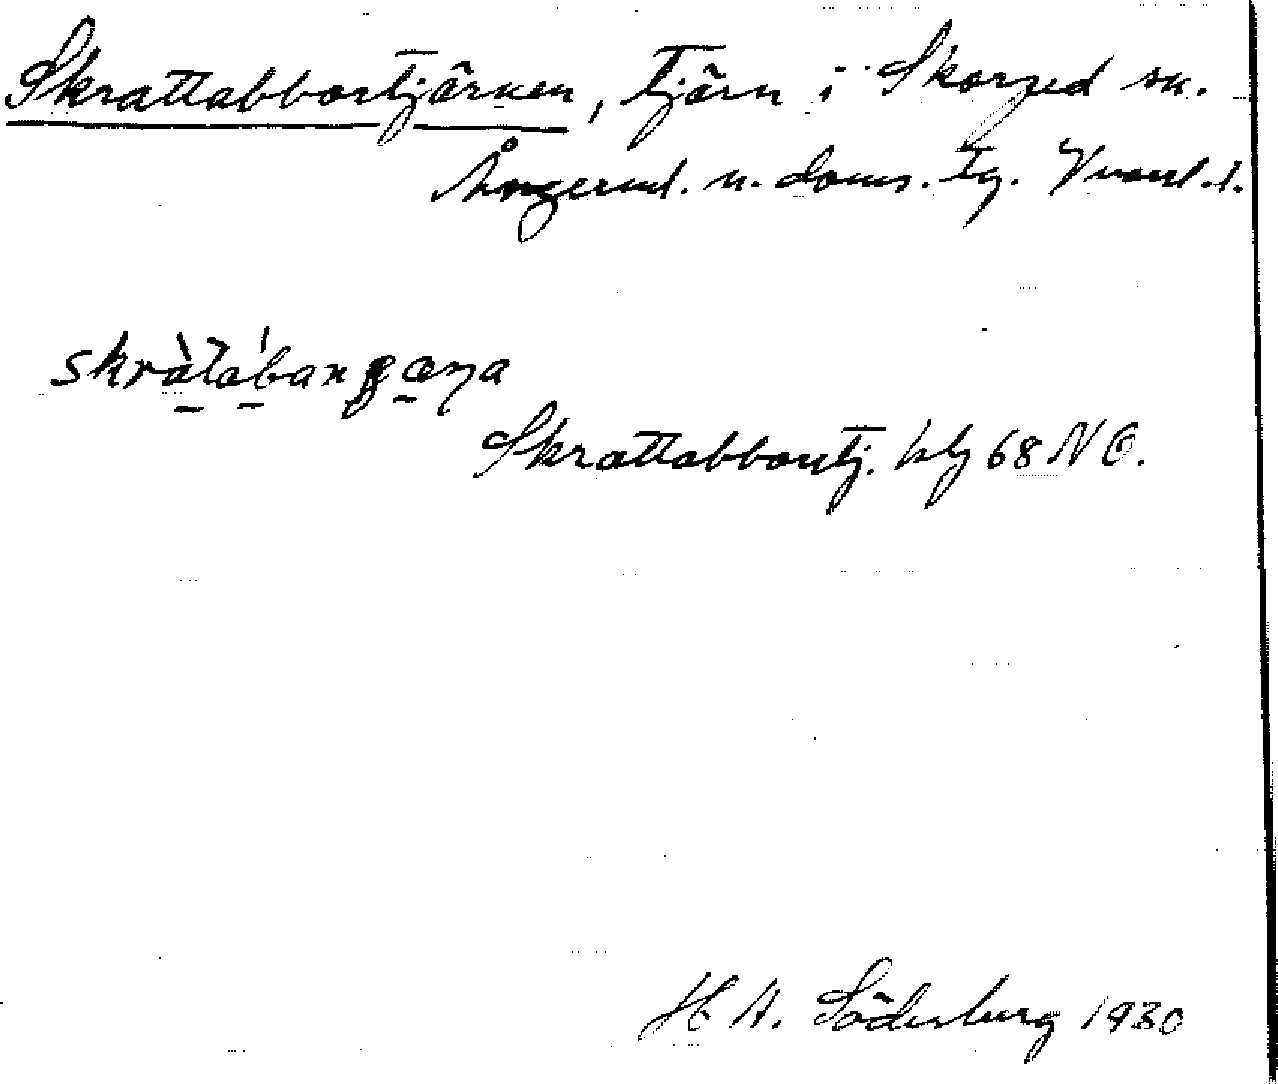 Skrattabbortjärnen, Tjärn i Skorped sn.
Ångerml. n. doms. tg. Vnorl. l.
Skrattabbortj. blg 68 NO.
H A. Söderberg 1930